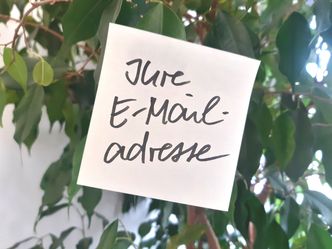 Ihre
E-Mail-
adresse